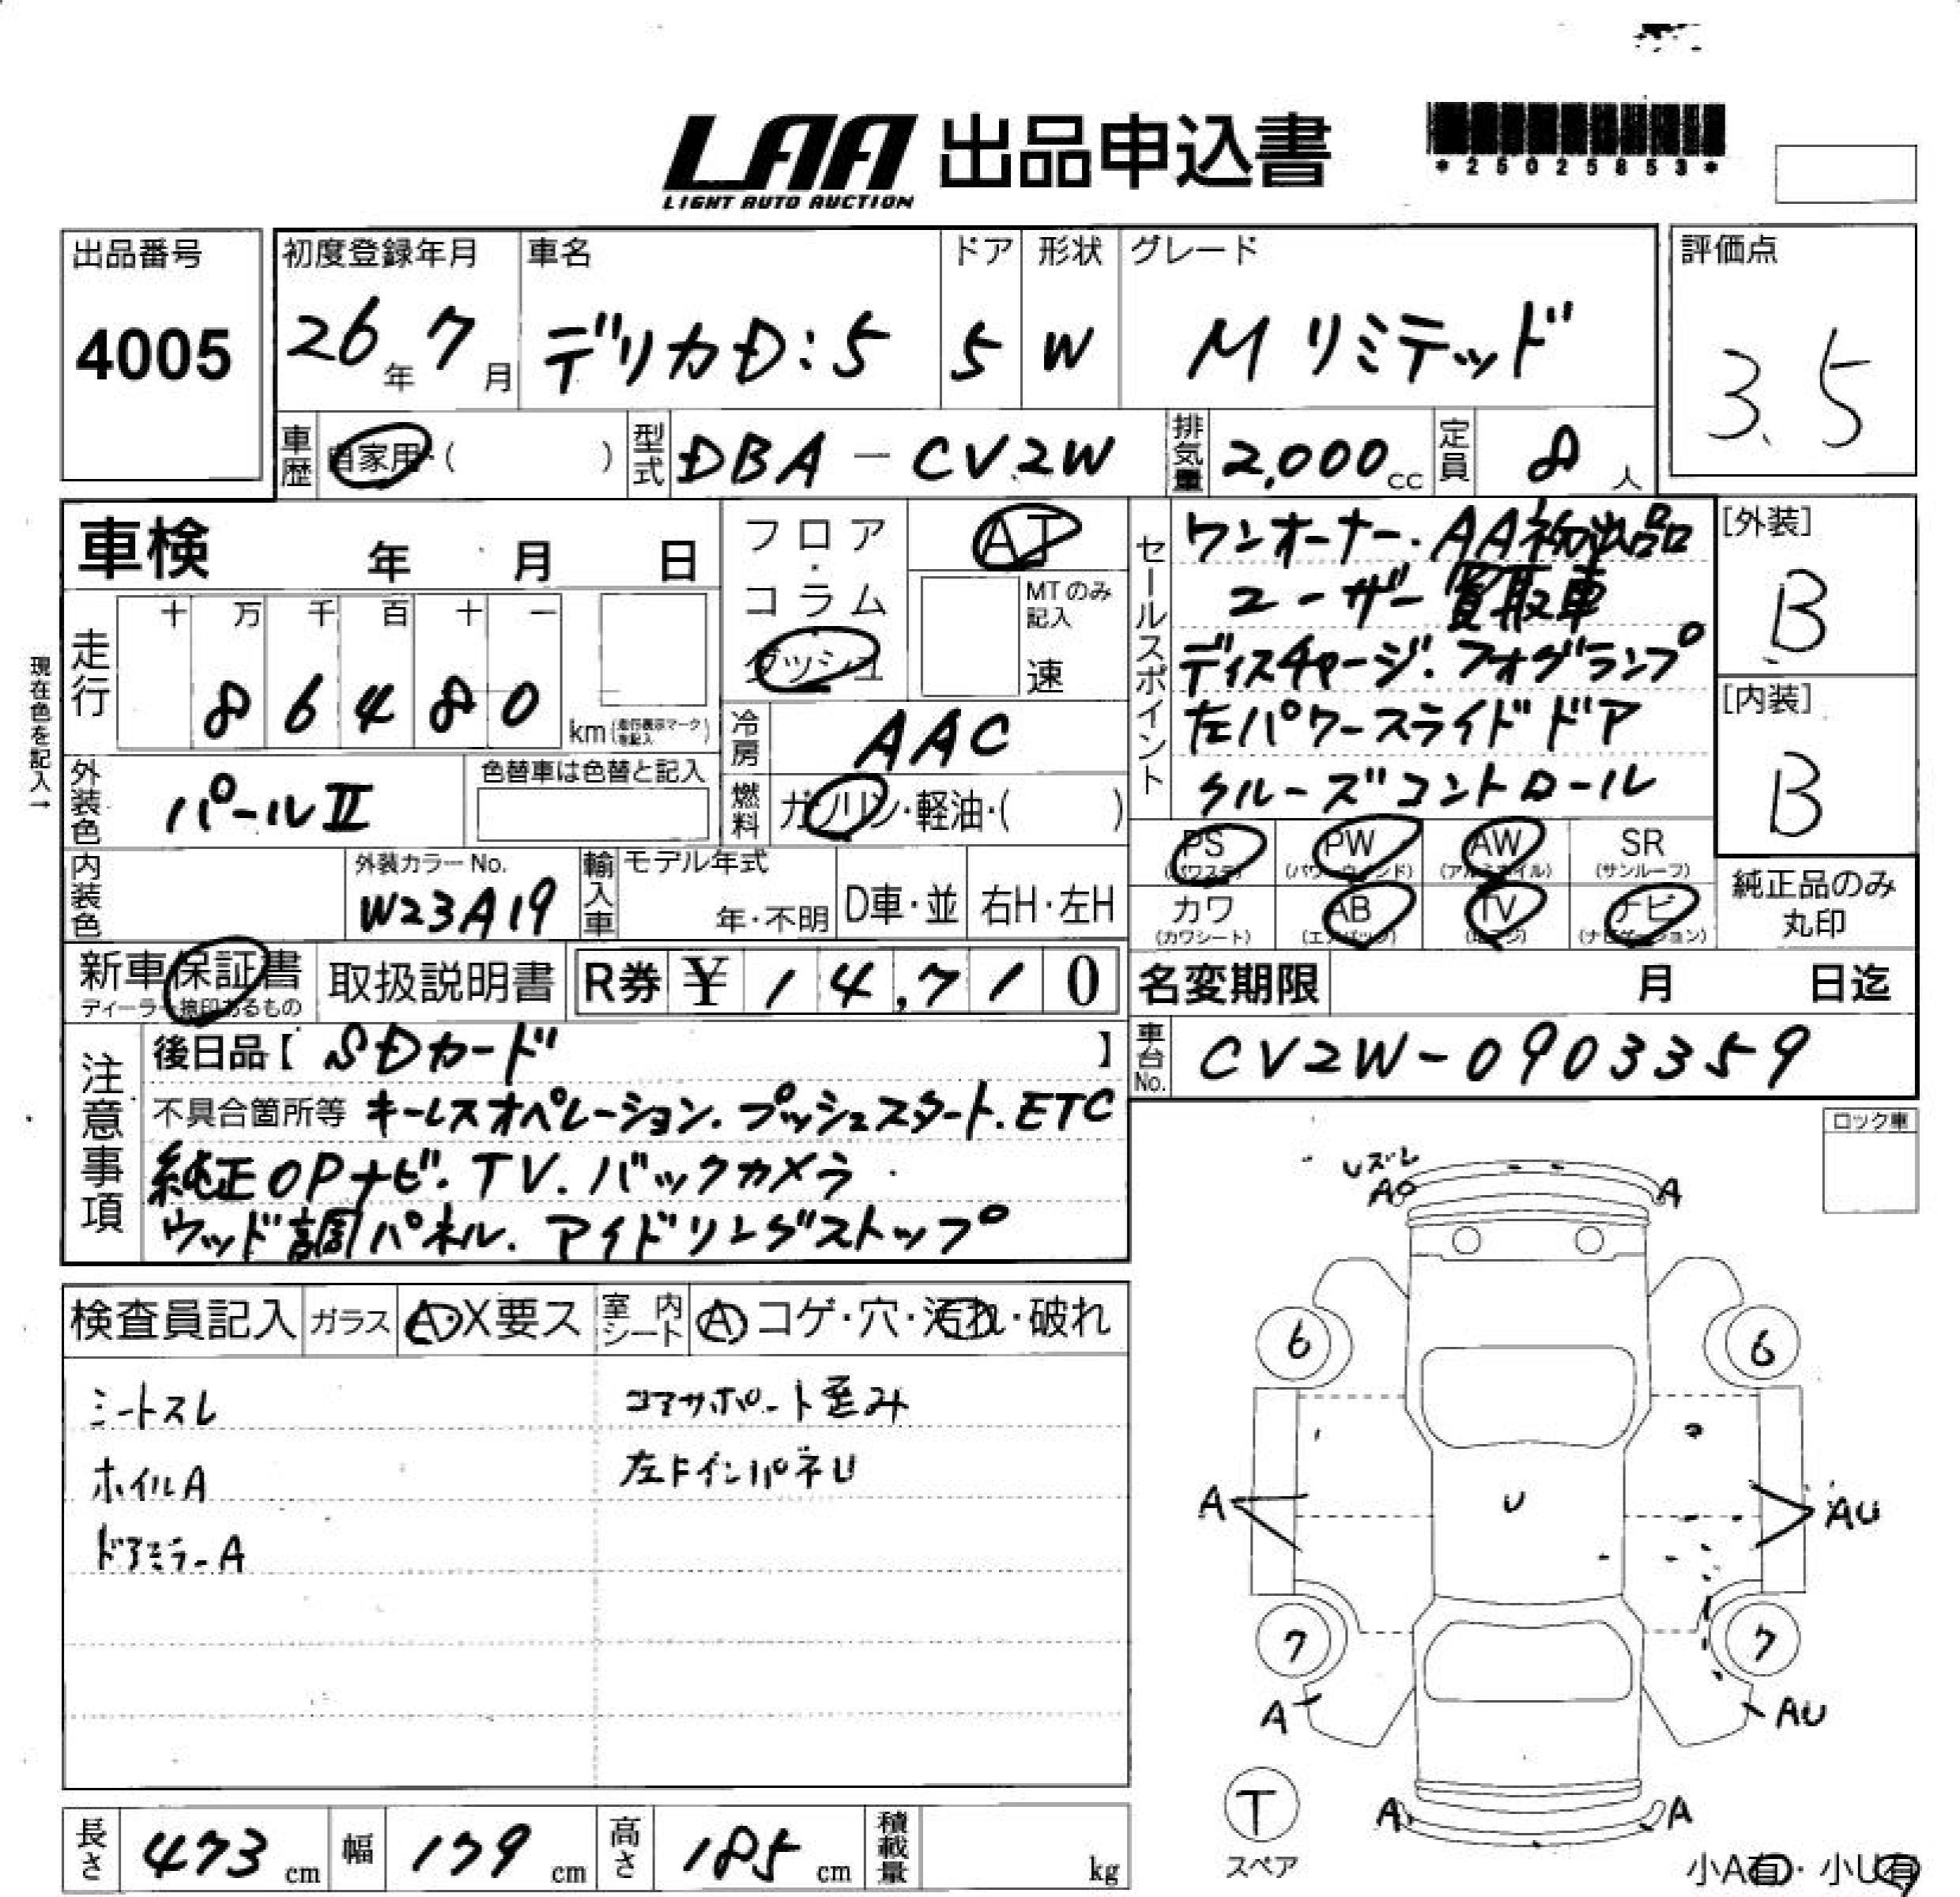 LAA 出品申込書
LIGHT AUTO AUCTION
*25025853*
出品番号
4005
初度登録年月 車名 ドア 形状 グレード
26年7月 デリカD:5 5 W Mリミテッド
評価点
3.5
車歴 自家用・( ) 型式 DBA-CV2W 排気量 2,000cc 定員 8人
車検 年 月 日
フロア・コラム
ダッシュ
AT
MTのみ記入
速
セールスポイント
ワンオーナー・AA初出品
ユーザー買取車
ディスチャージ・フォグランプ
左パワースライドドア
クルーズコントロール
[外装]
B
[内装]
B
現在色を記入→
走行 十 万 千 百 十 一
8 6 4 8 0 km(走行表示マークを記入)
冷房 AAC
外装色 パールⅡ 色替車は色替と記入
燃料 ガソリン・軽油・( )
内装色 外装カラーNo. W23A19
輸入車 モデル年式 年・不明 D車・並 右H・左H
PS (パワステ) PW (パワーウィンド) AW (アルミホイル) SR (サンルーフ)
カワ (カワシート) AB (エアバッグ) TV (地デジ) ナビ (ナビゲーション)
純正品のみ丸印
新車保証書 ディーラー捺印あるもの
取扱説明書 R券 ¥14,710
名変期限 月 日迄
車台No. CV2W-0903359
注意事項
後日品【 SDカード 】
不具合箇所等 キーレスオペレーション.プッシュスタート.ETC
純正OPナビ.TV.バックカメラ
ウッド調パネル.アイドリングストップ
ロック車
検査員記入 ガラス A・X要ス 室内シート A コゲ・穴・汚れ・破れ
シートスレ コアサポート歪み
ホイルA 左FインパネU
ドアミラーA
Uズレ
A A
6 6
A U AU
7 7
A AU
T
スペア
A A
小A有・小U有
長さ 473cm 幅 179cm 高さ 185cm 積載量 kg